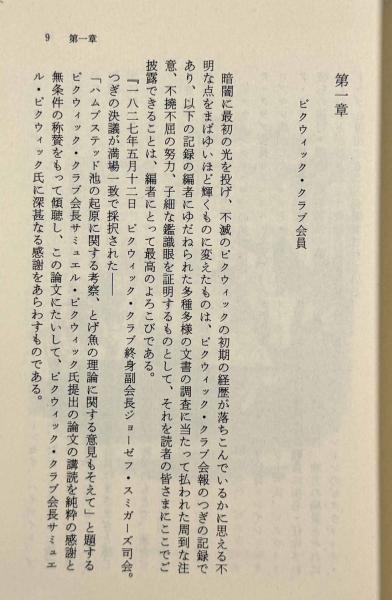 9 第一章
第一章
ピクウィック・クラブ会員
暗闇に最初の光を投げ、不滅のピクウィックの初期の経歴が落ちこんでいるかに思える不
明な点をまばゆいほど輝くものに変えたものは、ピクウィック・クラブ会報のつぎの記録で
あり、以下の記録の編者にゆだねられた多種多様の文書の調査に当たって払われた周到な注
意、不撓不屈の努力、子細な鑑識眼を証明するものとして、それを読者の皆さまにここでご
披露できることは、編者にとって最高のよろこびである。
『一八二七年五月十二日 ピクウィック・クラブ終身副会長ジョーゼフ・スミガーズ司会。
つぎの決議が満場一致で採択された――
「ハムプステッド池の起原に関する考察、とげ魚の理論に関する意見もそえて」と題する
ピクウィック・クラブ会長サミュエル・ピクウィック氏提出の論文の講読を純粋の感謝と
無条件の称賛をもって傾聴し、この論文にたいして、ピクウィック・クラブ会長サミュエ
ル・ピクウィック氏に深甚なる感謝をあらわすものである。